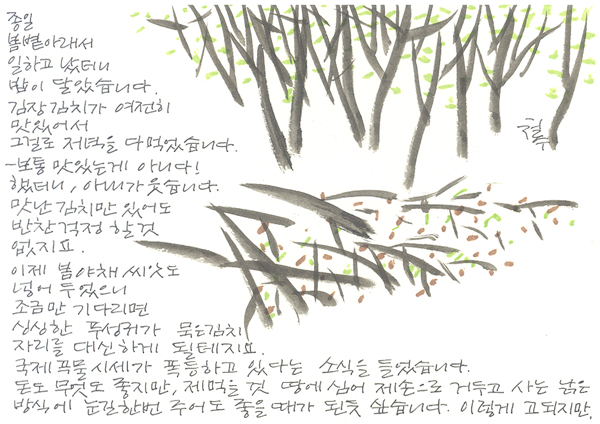 종일
봄볕아래서
일하고 났더니
밥이 달았습니다.
김장김치가 여전히
맛있어서
그걸로 저녁을 다먹었습니다.
-보통 맛있는게 아니다!
했더니, 아내가 웃습니다.
맛난 김치만 있어도
반찬걱정 할것
없지요.
이제 봄야채 씨앗도
넣어 두었으니
조금만 기다리면
싱싱한 푸성귀가 묵은김치
자리를 대신하게 될테지요.
국제곡물시세가 폭등하고 있다는 소식을 들었습니다.
돈도 무엇도 좋지만, 제먹을것 땅에심어 제손으로 거두고 사는 낡은
방식에 눈길한번 주어도 좋을때가 된듯 싶습니다. 이렇게 고되지만,
철수